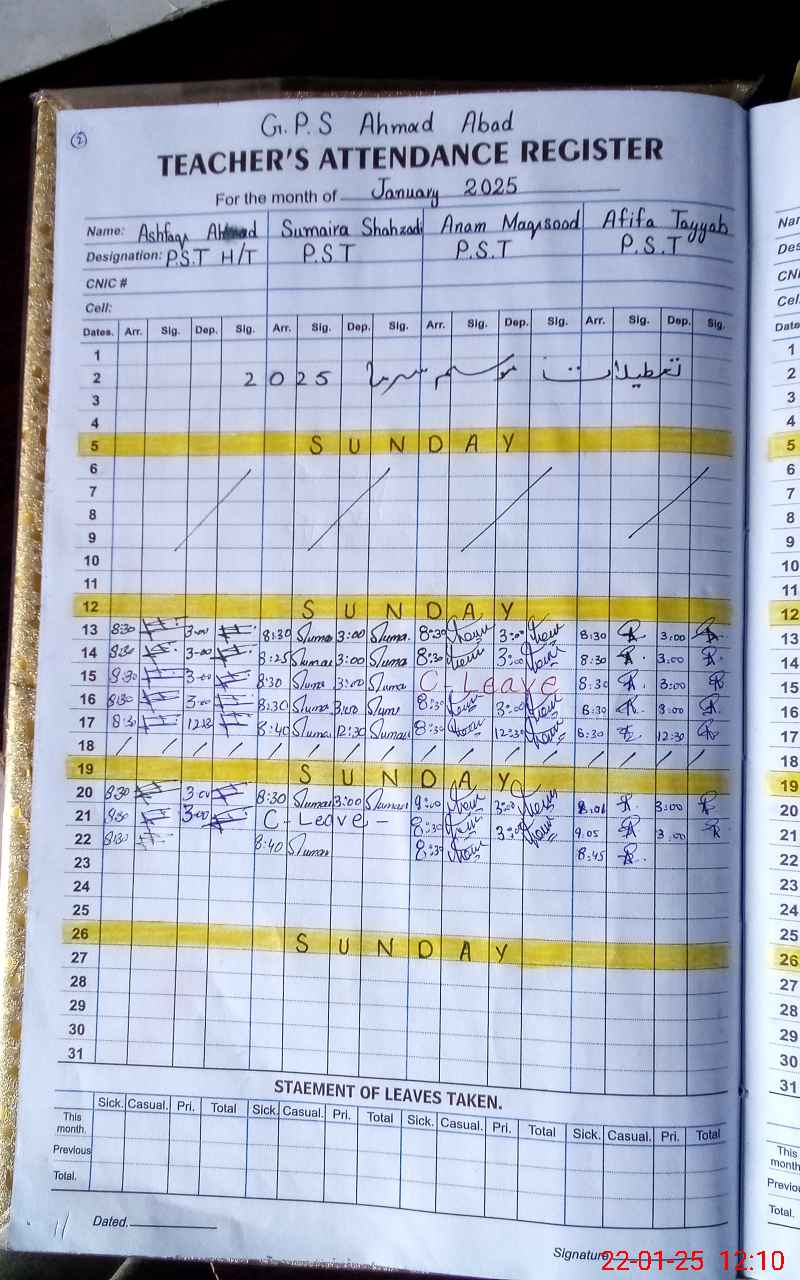 2
G.P.S Ahmad Abad
TEACHER'S ATTENDANCE REGISTER
For the month of January 2025
Name: Ashfaq Ahmad Sumaira Shahzadi Anam Maqsood Afifa Tayyab
Designation: P.S.T H/T P.S.T P.S.T P.S.T
CNIC #
Cell:
Dates. Arr. Sig. Dep. Sig. Arr. Sig. Dep. Sig. Arr. Sig. Dep. Sig. Arr. Sig. Dep. Sig.
1
2 تعطیلات موسم سرما 2025
3
4
5 SUNDAY
6
7
8
9
10
11
12 SUNDAY
13 8:30 3:00 8:30 3:00 8:30 3:00 8:30 3:00
14 8:30 3:00 8:25 3:00 8:30 3:00 8:30 3:00
15 8:30 3:00 8:30 3:00 C-Leave 8:30 3:00
16 8:30 3:00 8:30 3:00 8:30 3:00 8:30 3:00
17 8:30 12:30 8:40 12:30 8:30 12:30 8:30 12:30
18
19 SUNDAY
20 8:30 3:00 8:30 3:00 9:00 3:00 3:00
21 8:30 3:00 C-Leave - 8:30 3:00 9.05 3.00
22 8:30 8:40 8:30 8:45
23
24
25
26 SUNDAY
27
28
29
30
31
STAEMENT OF LEAVES TAKEN.
Sick. Casual. Pri. Total Sick. Casual. Pri. Total Sick. Casual. Pri. Total Sick. Casual. Pri. Total
This month.
Previous
Total.
Dated.
Signature
22-01-25 12:10